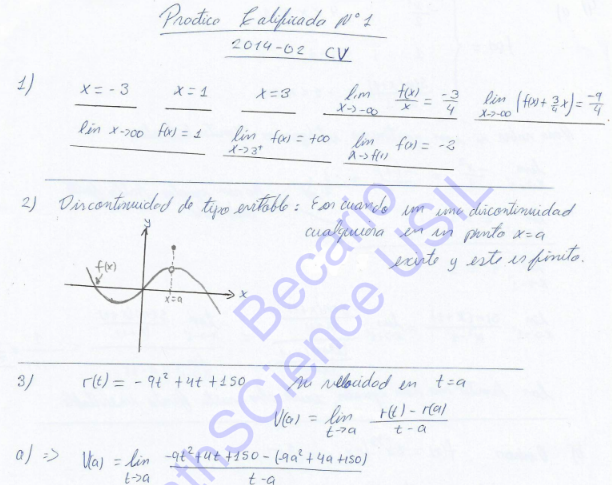 Practica Calificada N° 1
2014-02 CV
1) x = -3 x = 1 x = 3 lim x→-∞ f(x)/x = -3/4 lim x→-∞ (f(x) + 3/4 x) = -9/4
lim x→∞ f(x) = 1 lim x→3⁺ f(x) = +∞ lim x→f(1) f(x) = -2
2) Discontinuidad de tipo evitable: Es cuando en una discontinuidad
cualquiera en un punto x=a
existe y este es finito.
y
f(x)
x=a
x
3) r(t) = -9t² + 4t + 150 velocidad en t=a
V(a) = lim t→a r(t) - r(a) / t - a
a) => V(a) = lim t→a -9t² + 4t + 150 - (-9a² + 4a + 150) / t - a
Becario
MathSCience USIL